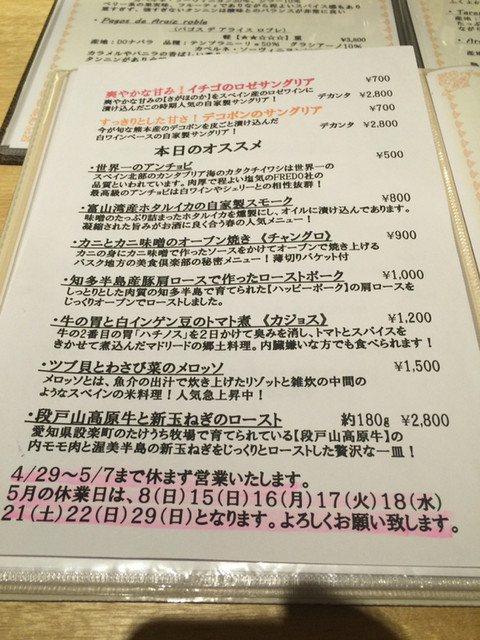 Pagos de Araiz roble
（パゴス デ アライス ロブレ）
産地：DOナバラ 品種：テンプラニーリョ50% グラシアーノ10%
爽やかな甘み！イチゴのロゼサングリア ¥700
爽やかな甘みの【さがほのか】をスペイン産のロゼワインに デカンタ ¥2,800
漬け込んだこの時期人気の自家製サングリア！
すっきりとした甘さ！デコポンのサングリア ¥700
今が旬な熊本産のデコポンを皮ごと漬け込んだ デカンタ ¥2,800
白ワインベースの自家製サングリア！
本日のオススメ
・世界一のアンチョビ ¥500
スペイン北部のカンタブリア海のカタクチイワシは世界一の
品質といわれています。肉厚で程よい塩気のFREDO社の
最高級のアンチョビは白ワインやシェリーとの相性抜群！
・富山湾産ホタルイカの自家製スモーク ¥800
味噌のたっぷり詰まったホタルイカを燻製にし、オイルに漬け込んであります。
凝縮された旨みがお酒に良く合う春の人気メニュー！
・カニとカニ味噌のオーブン焼き《チャングロ》 ¥900
カニの身にカニ味噌で作ったソースをかけてオーブンで焼き上げる
バスク地方の美食倶楽部の秘密メニュー！薄切りバケット付
・知多半島産豚肩ロースで作ったローストポーク ¥1,000
しっとりとした肉質の知多半島で育てられた【ハッピーポーク】の肩ロースを
じっくりオーブンでローストしました。
・牛の胃と白インゲン豆のトマト煮 《カジョス》 ¥1,200
牛の2番目の胃「ハチノス」を2日かけて臭みを消し、トマトとスパイスを
きかせて煮込んだマドリードの郷土料理。内臓嫌いな方でも食べられます！
・ツブ貝とわさび菜のメロッソ ¥1,500
メロッソとは、魚介の出汁で炊き上げたリゾットと雑炊の中間の
ようなスペインの米料理！人気急上昇中！
・段戸山高原牛と新玉ねぎのロースト 約180g ¥2,800
愛知県設楽町のたけうち牧場で育てられている【段戸山高原牛】の
内モモ肉と渥美半島の新玉ねぎをじっくりとローストした贅沢な一皿！
4/29～5/7まで休まず営業いたします。
5月の休業日は、8(日)15(日)16(月)17(火)18(水)
21(土)22(日)29(日)となります。よろしくお願い致します。